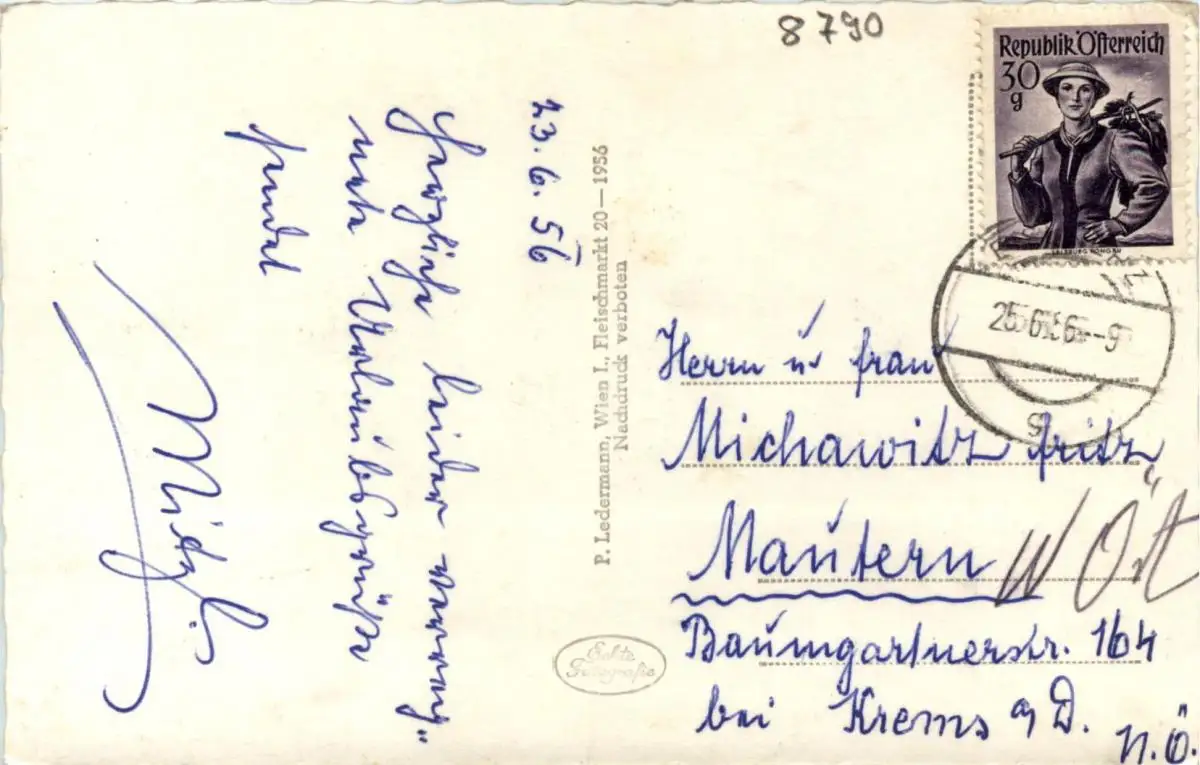 8790
Republik Österreich
30
g
SALZBURG PONGAU
25.6.56-9
23.6.56
Herzliche leider verreg„
nete Urlaubsgrüße
sendet
Mitzi.
P. Ledermann, Wien I., Fleischmarkt 20—1956
Nachdruck verboten
Echte
Fotografie
Herrn u frau
Michawitz fritz
Mautern W Öst
Baumgartnerstr. 164
bei Krems a/D. N.Ö.